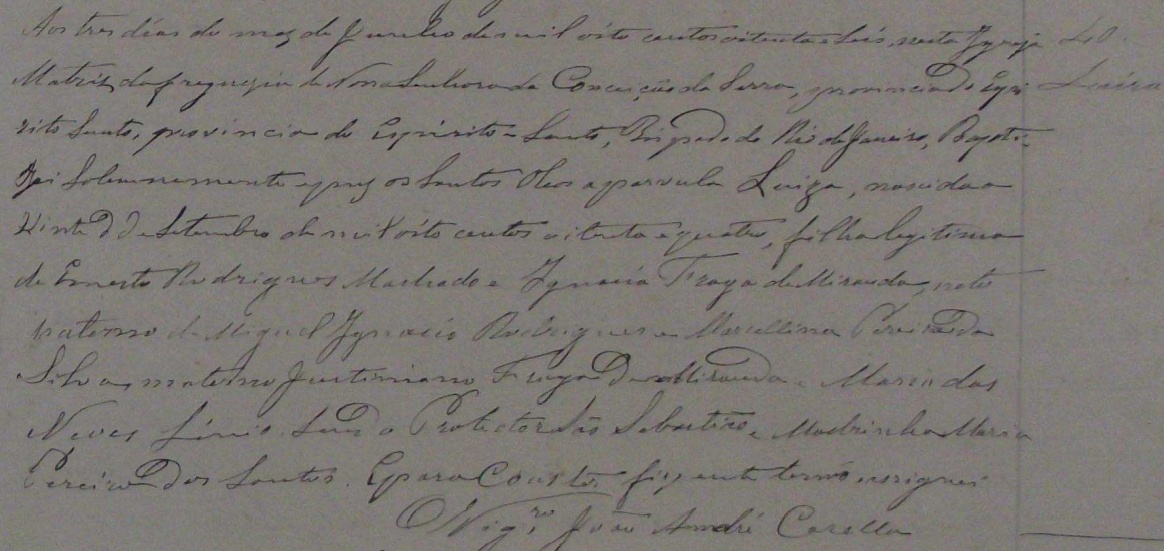 Aos tres dias do mez de Junho de mil oito centos oitenta e seis, nesta Igreja 40.
Matriz da freguezia de Nossa Senhora da Conceição da Serra, provincia do Espi Luiza
rito Santo, provincia do Espirito-Santo, Bispado do Rio de Janeiro, Bapti-
zei solemnemente e puz os Santos Oleos a parvula Luiza, nascida a
vinte de Setembro de mil oito centos oitenta e quatro, filha legitima
de Ernesto Rodrigues Machado e Ignacia Fraga de Miranda, neto
paterno de Miguel Ignacio Rodrigues e Marcellina Pereira da
Silva, materno Justiniano Fraga de Miranda e Maria das
Neves. Sendo Protector São Sebastião, e Madrinha Maria
Pereira dos Santos. E para constar fiz este termo e assignei
O Vigr.º João André Casella